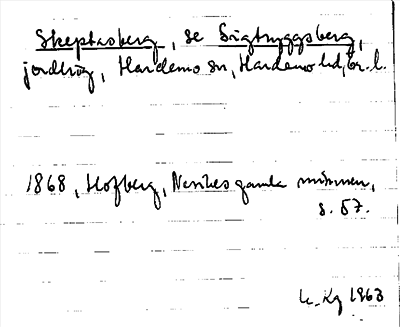 Skeptasberg, se Sigtryggsberg,
jordhög, Hardemo sn, Hardemo hd, Ör. l.
1868, Hofberg, Nerikes gamla minnen,
s. 57.
1963